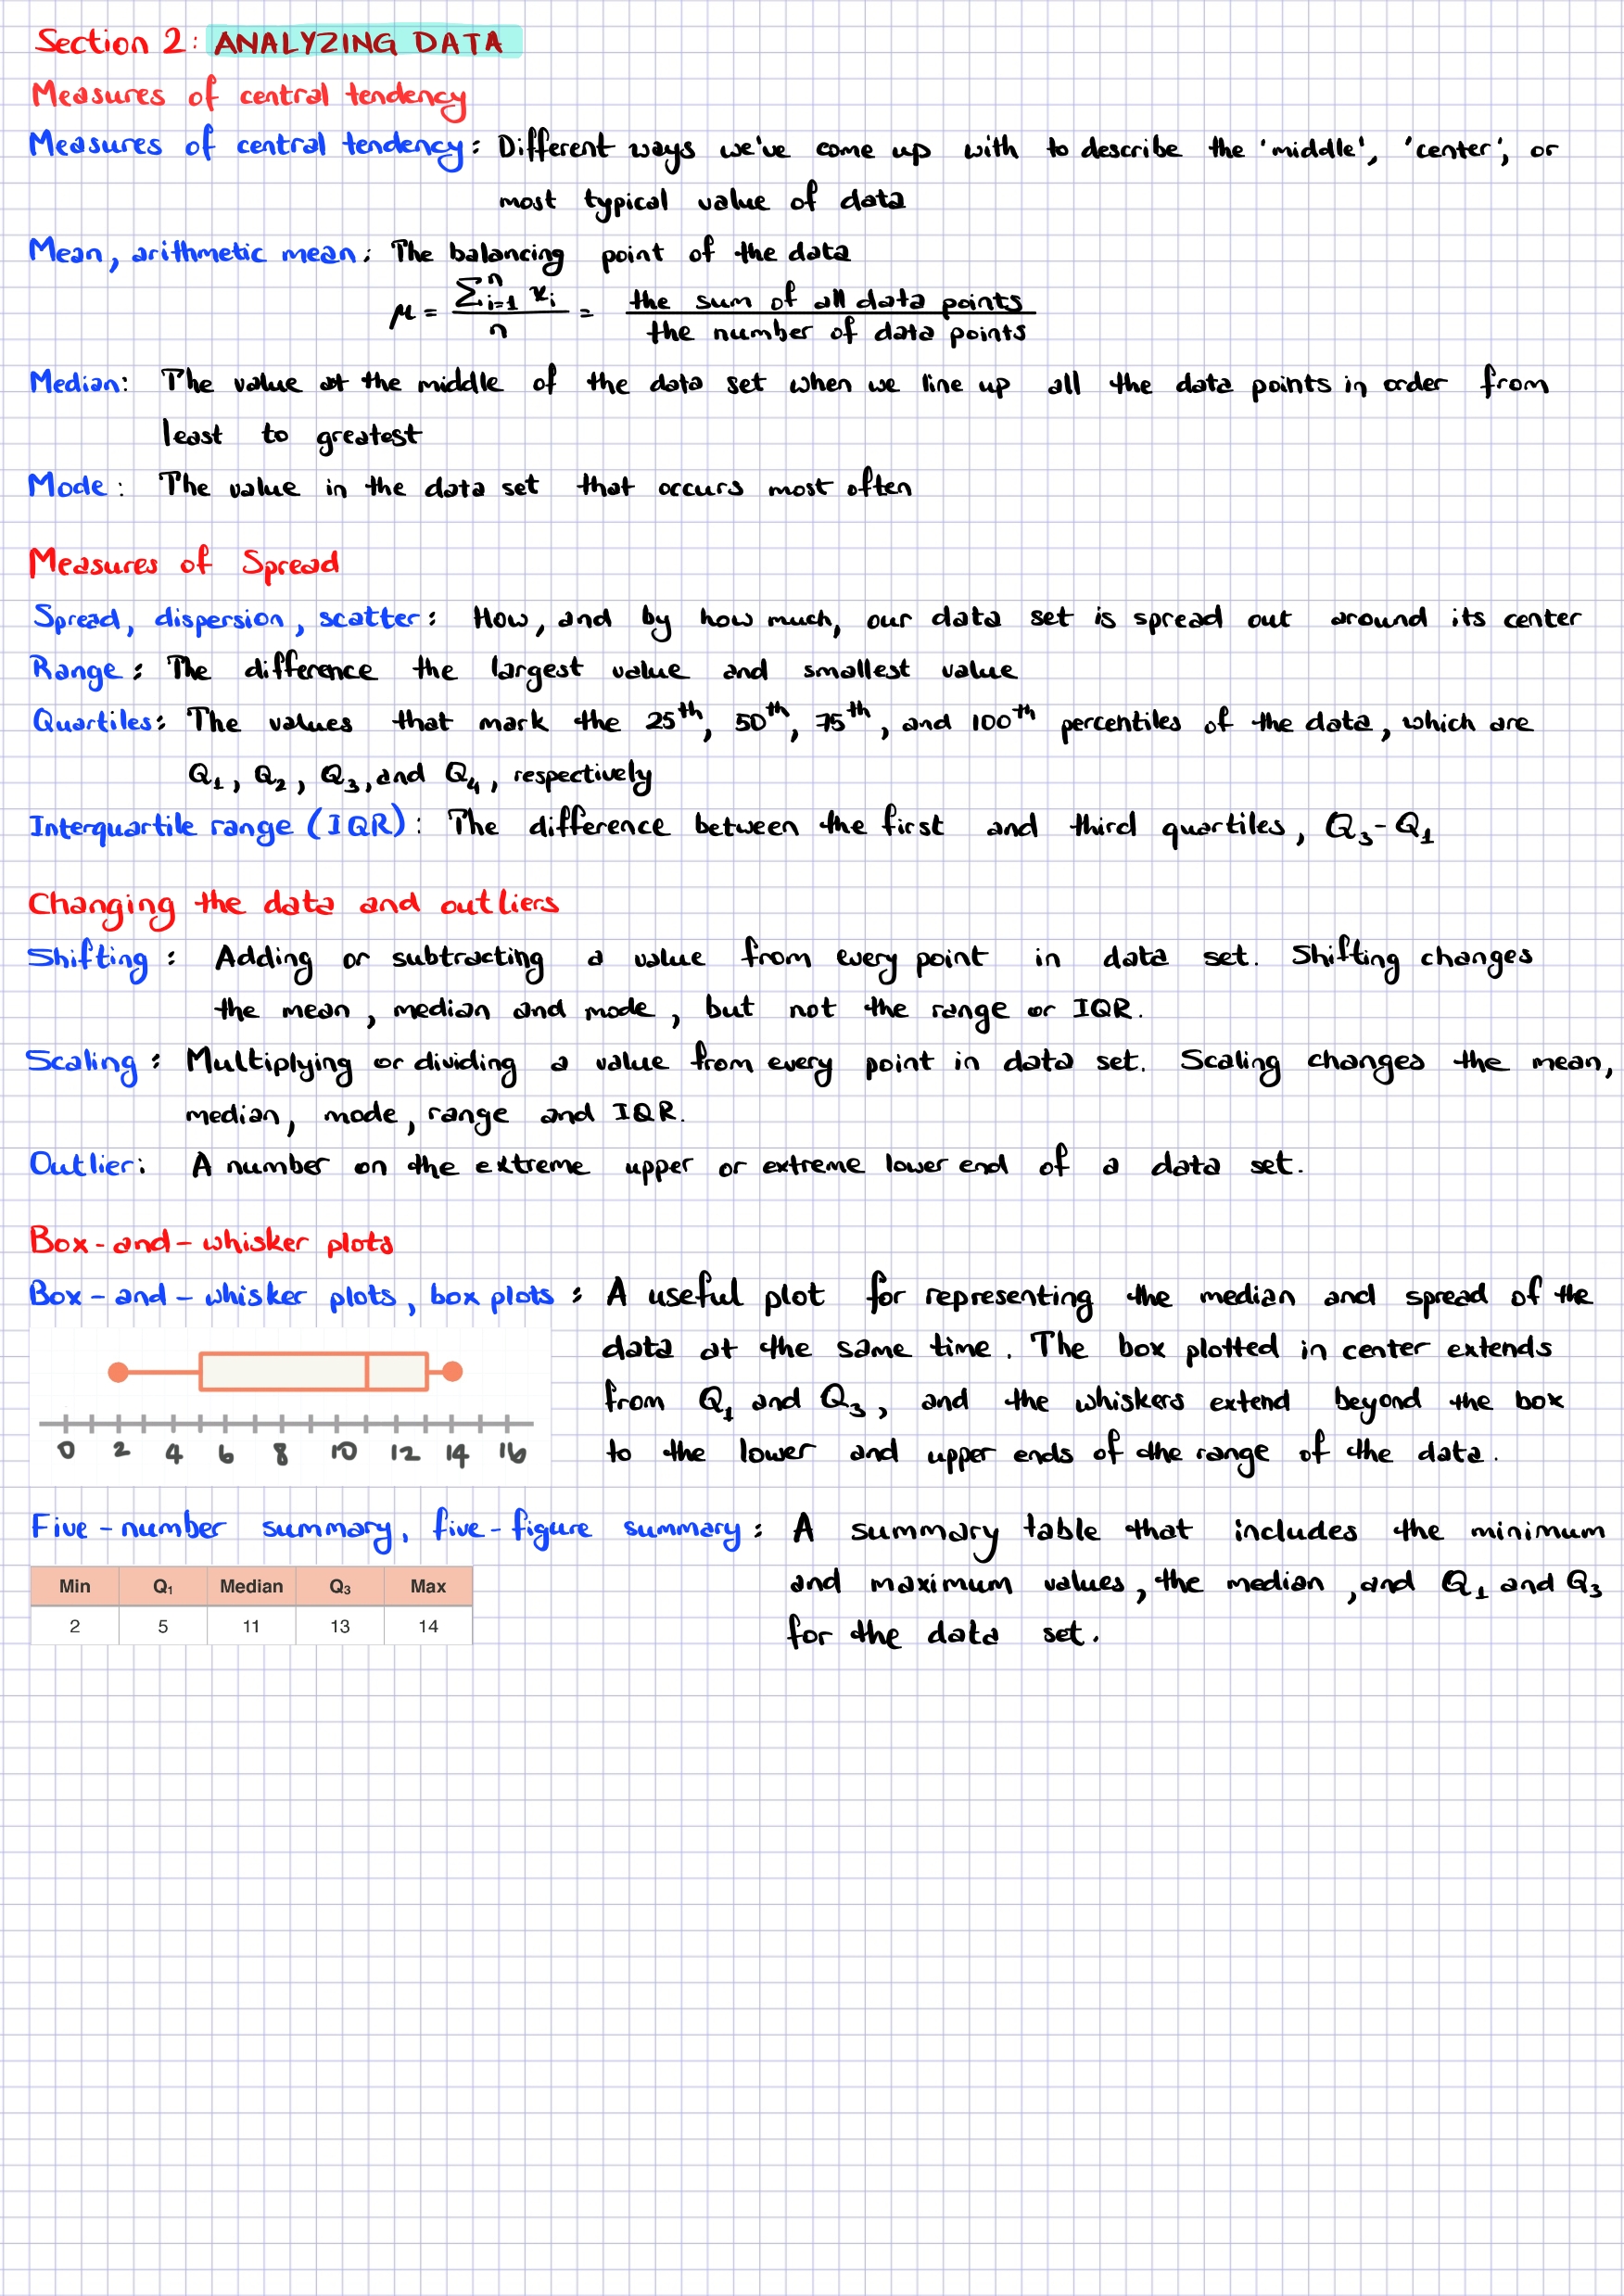 Section 2: ANALYZING DATA
Measures of central tendency
Measures of central tendency: Different ways we've come up with to describe the 'middle', 'center', or
most typical value of data
Mean, arithmetic mean: The balancing point of the data
μ = ∑ⁿᵢ₌₁ xᵢ / n = the sum of all data points / the number of data points
Median: The value at the middle of the data set when we line up all the data points in order from
least to greatest
Mode: The value in the data set that occurs most often
Measures of Spread
Spread, dispersion, scatter: How, and by how much, our data set is spread out around its center
Range: The difference the largest value and smallest value
Quartiles: The values that mark the 25th, 50th, 75th, and 100th percentiles of the data, which are
Q₁, Q₂, Q₃, and Q₄, respectively
Interquartile range (IQR): The difference between the first and third quartiles, Q₃-Q₁
Changing the data and outliers
Shifting: Adding or subtracting a value from every point in data set. Shifting changes
the mean, median and mode, but not the range or IQR.
Scaling: Multiplying or dividing a value from every point in data set. Scaling changes the mean,
median, mode, range and IQR.
Outlier: A number on the extreme upper or extreme lower end of a data set.
Box-and-whisker plots
Box-and-whisker plots, box plots: A useful plot for representing the median and spread of the
data at the same time. The box plotted in center extends
from Q₁ and Q₃, and the whiskers extend beyond the box
to the lower and upper ends of the range of the data.
0 2 4 6 8 10 12 14 16
Five-number summary, five-figure summary: A summary table that includes the minimum
and maximum values, the median, and Q₁ and Q₃
for the data set.
Min Q₁ Median Q₃ Max
2 5 11 13 14